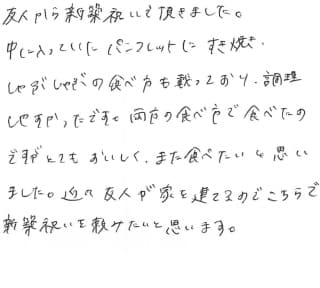 友人から新築祝いで頂きました。
中に入っていたパンフレットにすき焼き・
しゃぶしゃぶの食べ方も載っており、調理
しやすかったです。両方の食べ方で食べたの
ですがとてもおいしく、また食べたいと思い
ました。近々友人が家を建てるのでこちらで
新築祝いを頼みたいと思います。